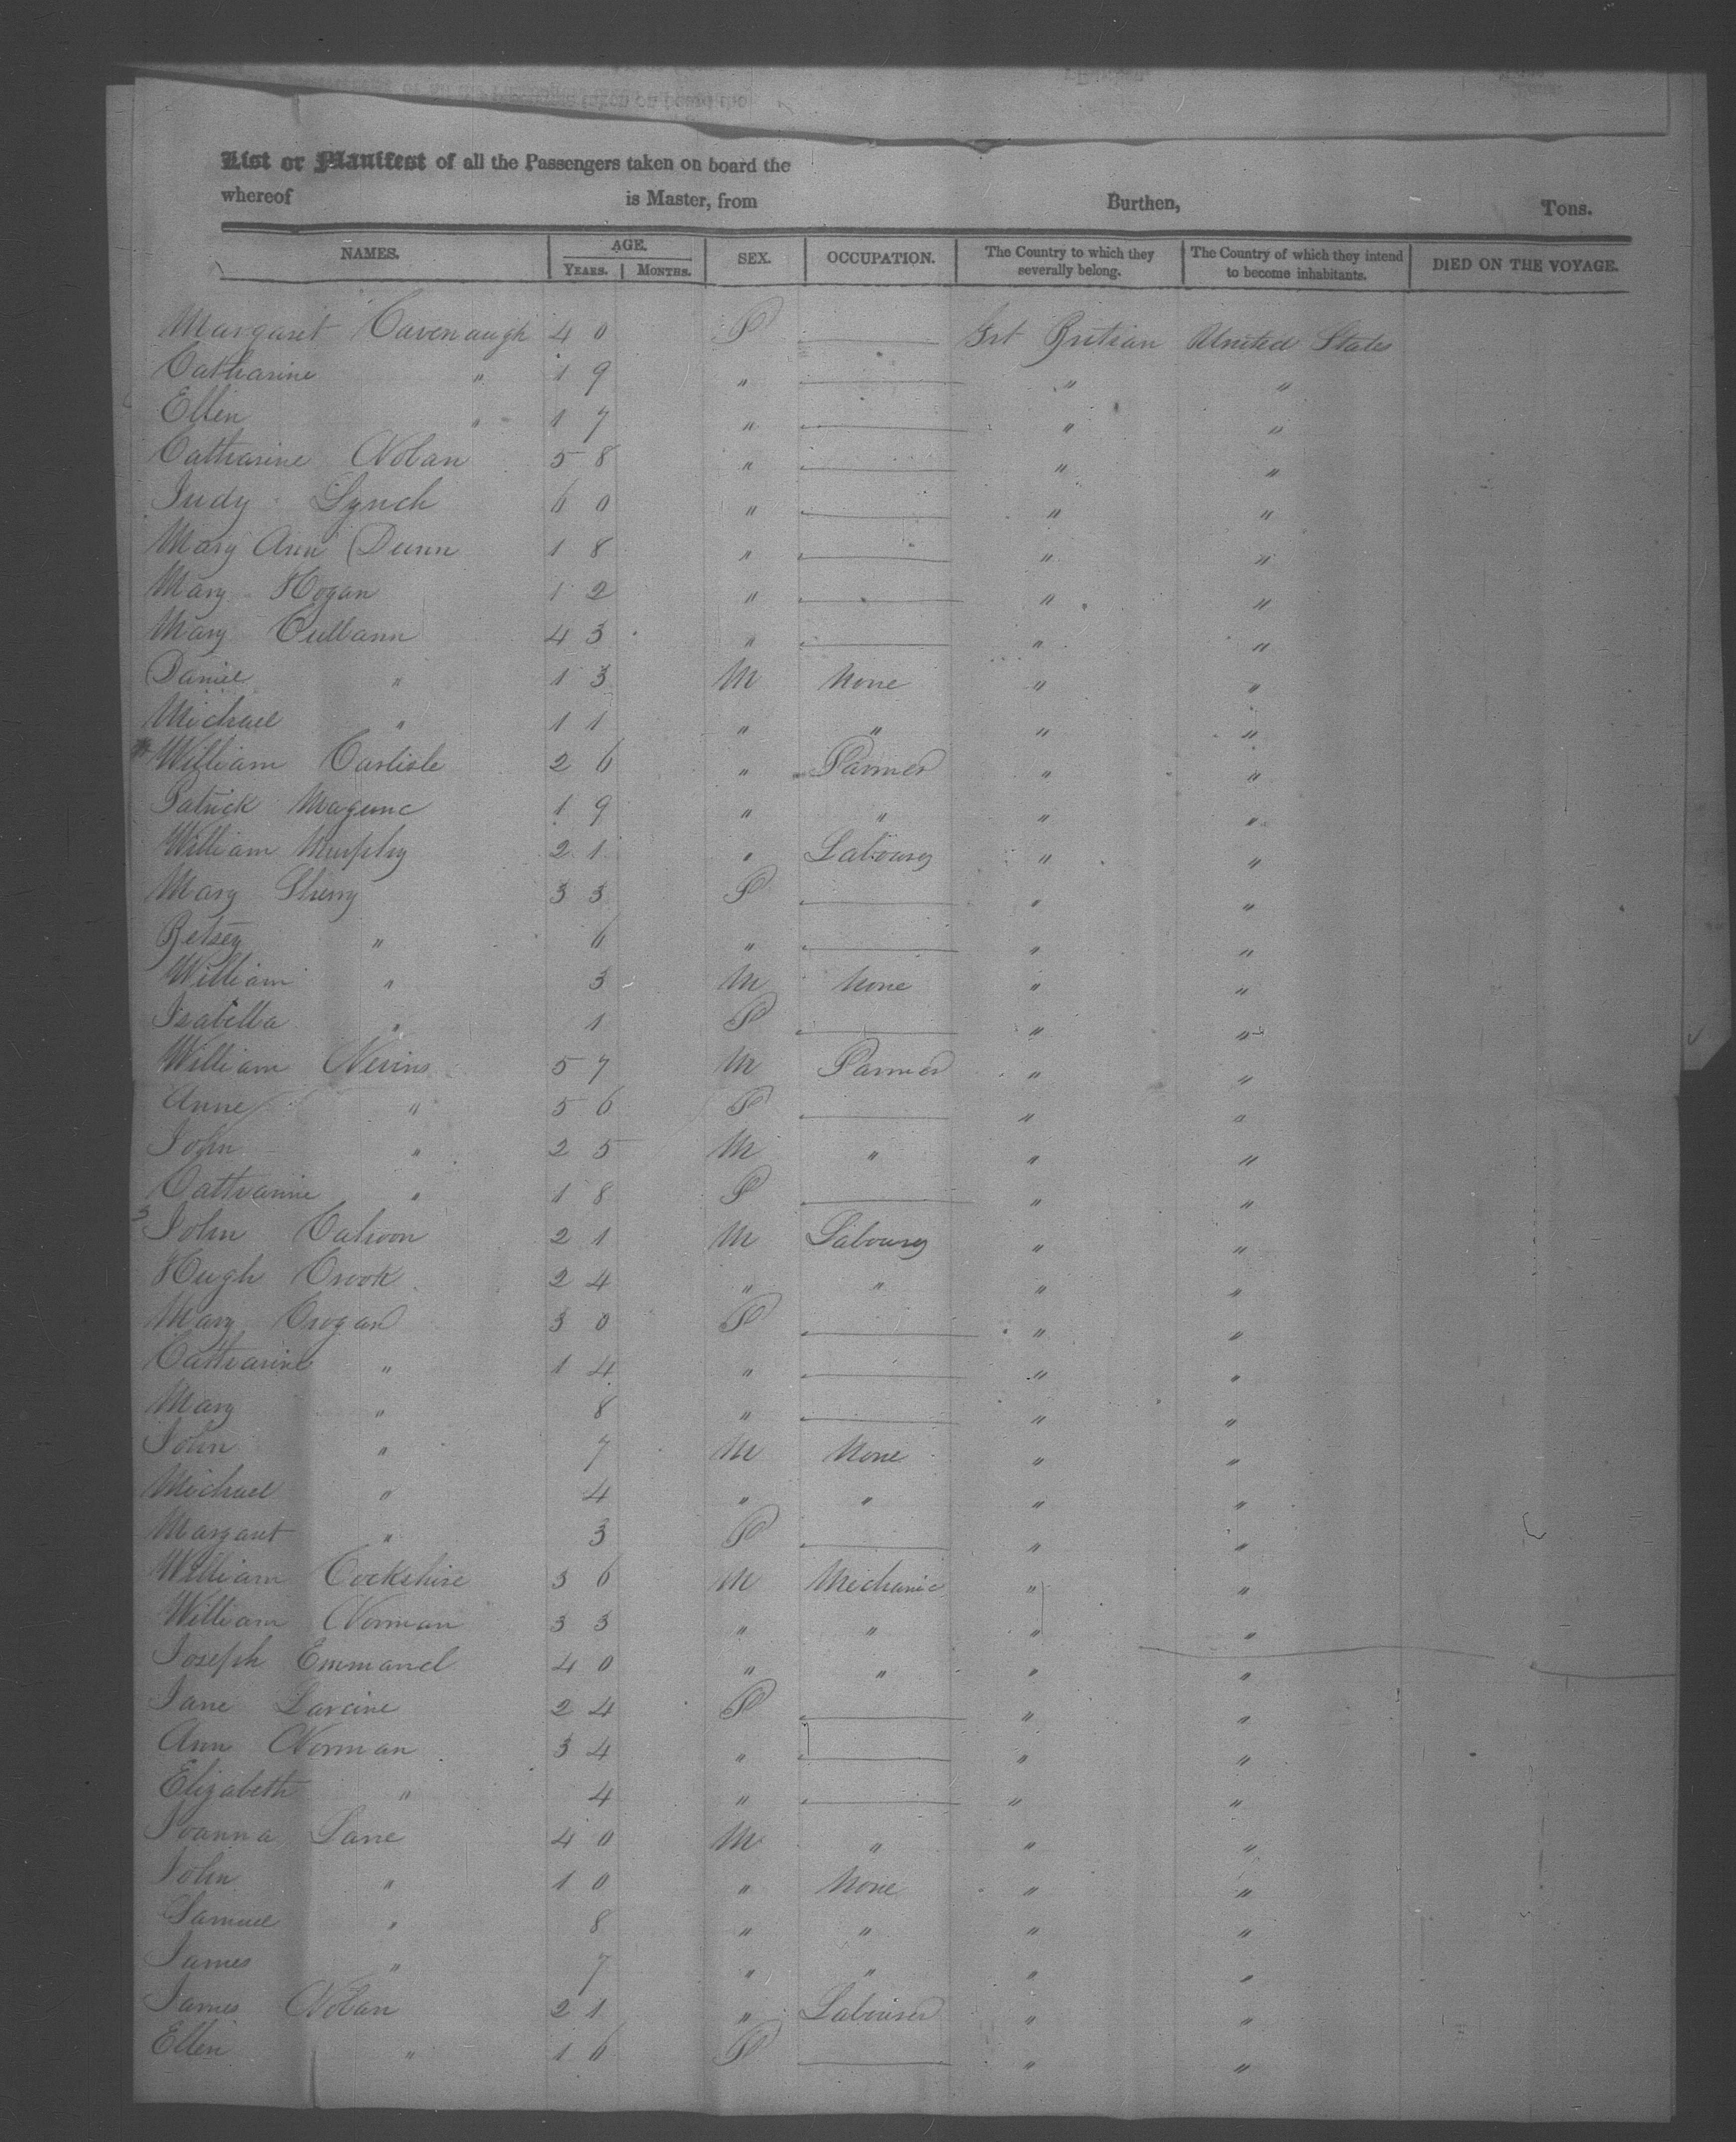 List or Manifest of all the Passengers taken on board the
whereof is Master, from Burthen, Tons.
NAMES. AGE. SEX. OCCUPATION. The Country to which they severally belong. The Country of which they intend to become inhabitants. DIED ON THE VOYAGE.
YEARS. MONTHS.
Margaret Cavenaugh 40 F Grt Britian United States
Catharine " 19 " " "
Ellen " 17 " " "
Catharine Nolan 58 " " "
Judy Lynch 60 " " "
Mary Ann Dunn 18 " " "
Mary Hogan 12 " " "
Mary Cullann 43 " " "
Daniel " 13 M None " "
Michael " 11 " " " "
William Carlisle 26 " Farmer " "
Patrick 19 " " " "
William Murphy 21 " Labourer " "
Mary Sherry 33 F " "
Betsey " 6 " " "
William " 3 M None " "
Isabella " 1 F " "
William Nevins 57 M Farmer " "
Anne " 56 F " "
John " 25 M " " "
Catharine " 18 F " "
John Cahoon 21 M Labourer " "
Hugh Crook 24 " " " "
Mary Crogan 30 F " "
Catharine " 14 " " "
Mary " 8 " " "
John " 7 M None " "
Michael " 4 " " " "
Margaret " 3 F " "
William Cockshire 36 M Mechanic " "
William Norman 33 " " " "
Joseph Emmanel 40 " " " "
Jane Larcine 24 F " "
Ann Norman 34 " " "
Elizabeth " 4 " " "
Joanna Lane 40 M " " "
John " 10 " None " "
Samuel " 8 " " " "
James " 7 " " " "
James Nolan 21 " Labourer " "
Ellen " 16 F " "